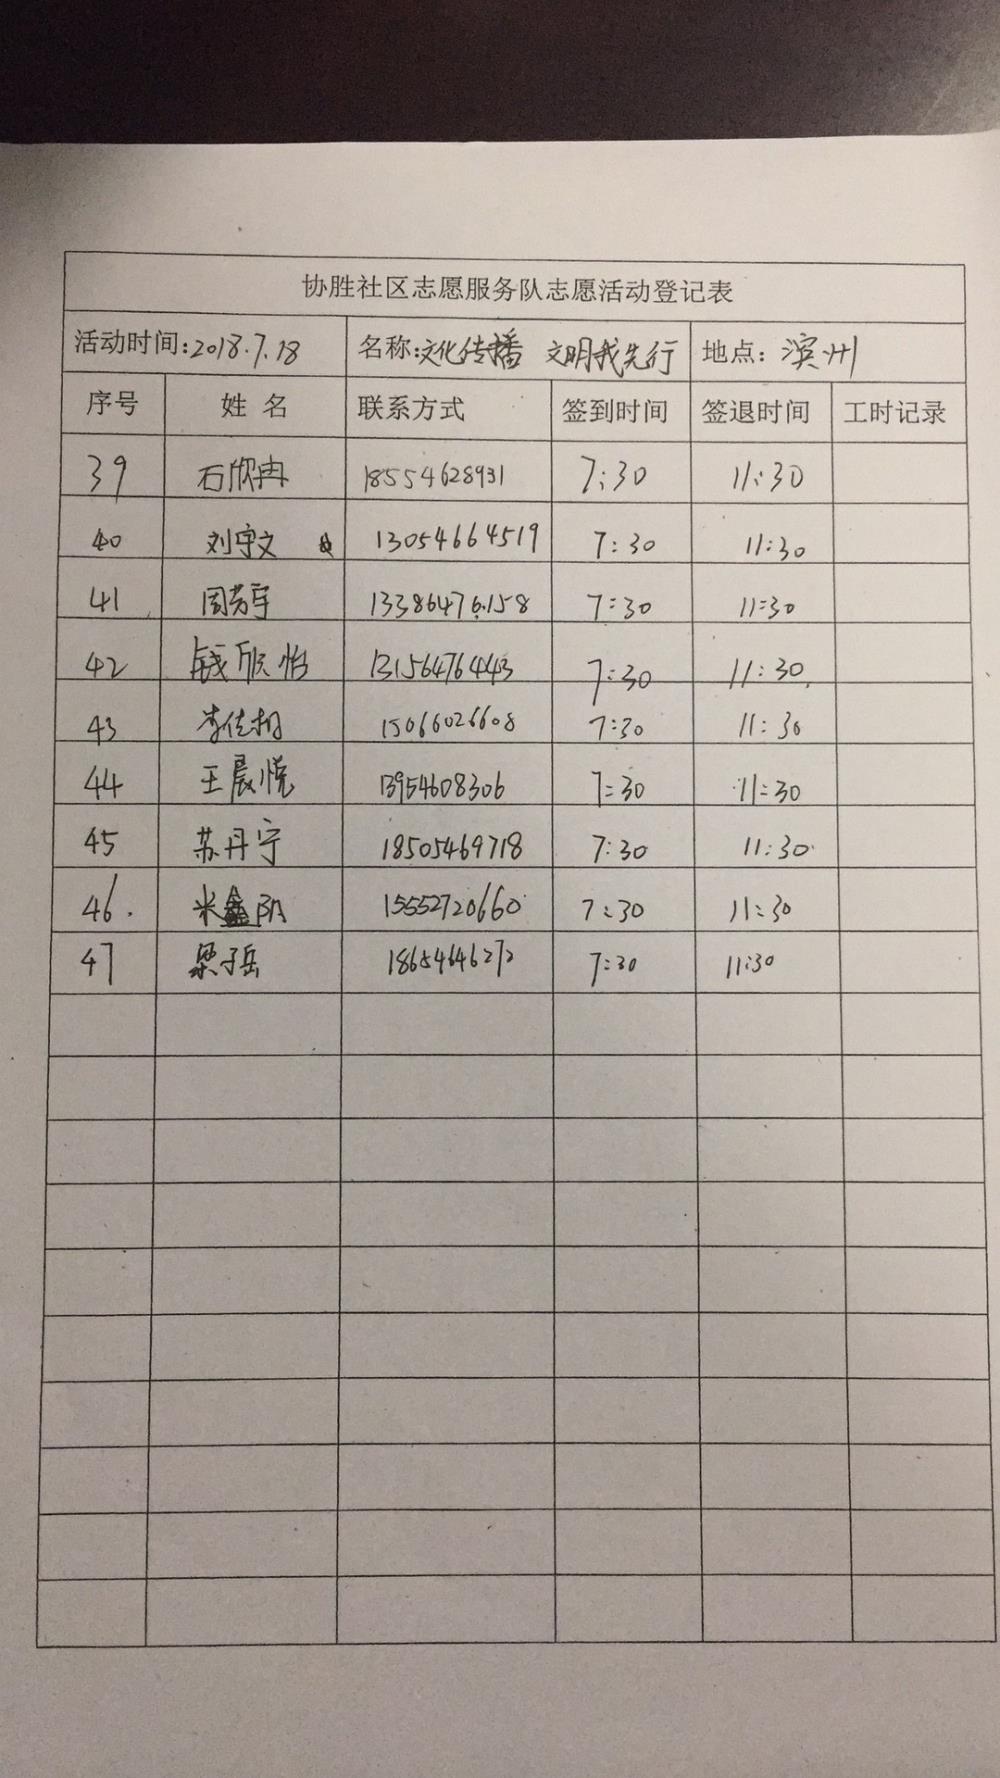 协胜社区志愿服务队志愿活动登记表
活动时间:2018.7.18 名称:文化传播 文明我先行 地点:滨州
序号 姓名 联系方式 签到时间 签退时间 工时记录
39 石欣冉 18554628931 7:30 11:30
40 刘宇文 13054664519 7:30 11:30
41 周芳宇 13386476158 7:30 11:30
42 钱欣怡 13156476443 7:30 11:30
43 李佳桐 15066026608 7:30 11:30
44 王晨悦 13954608306 7:30 11:30
45 苏丹宁 18505469718 7:30 11:30
46. 米鑫阳 15552720660 7:30 11:30
47 梁子岳 18654646272 7:30 11:30